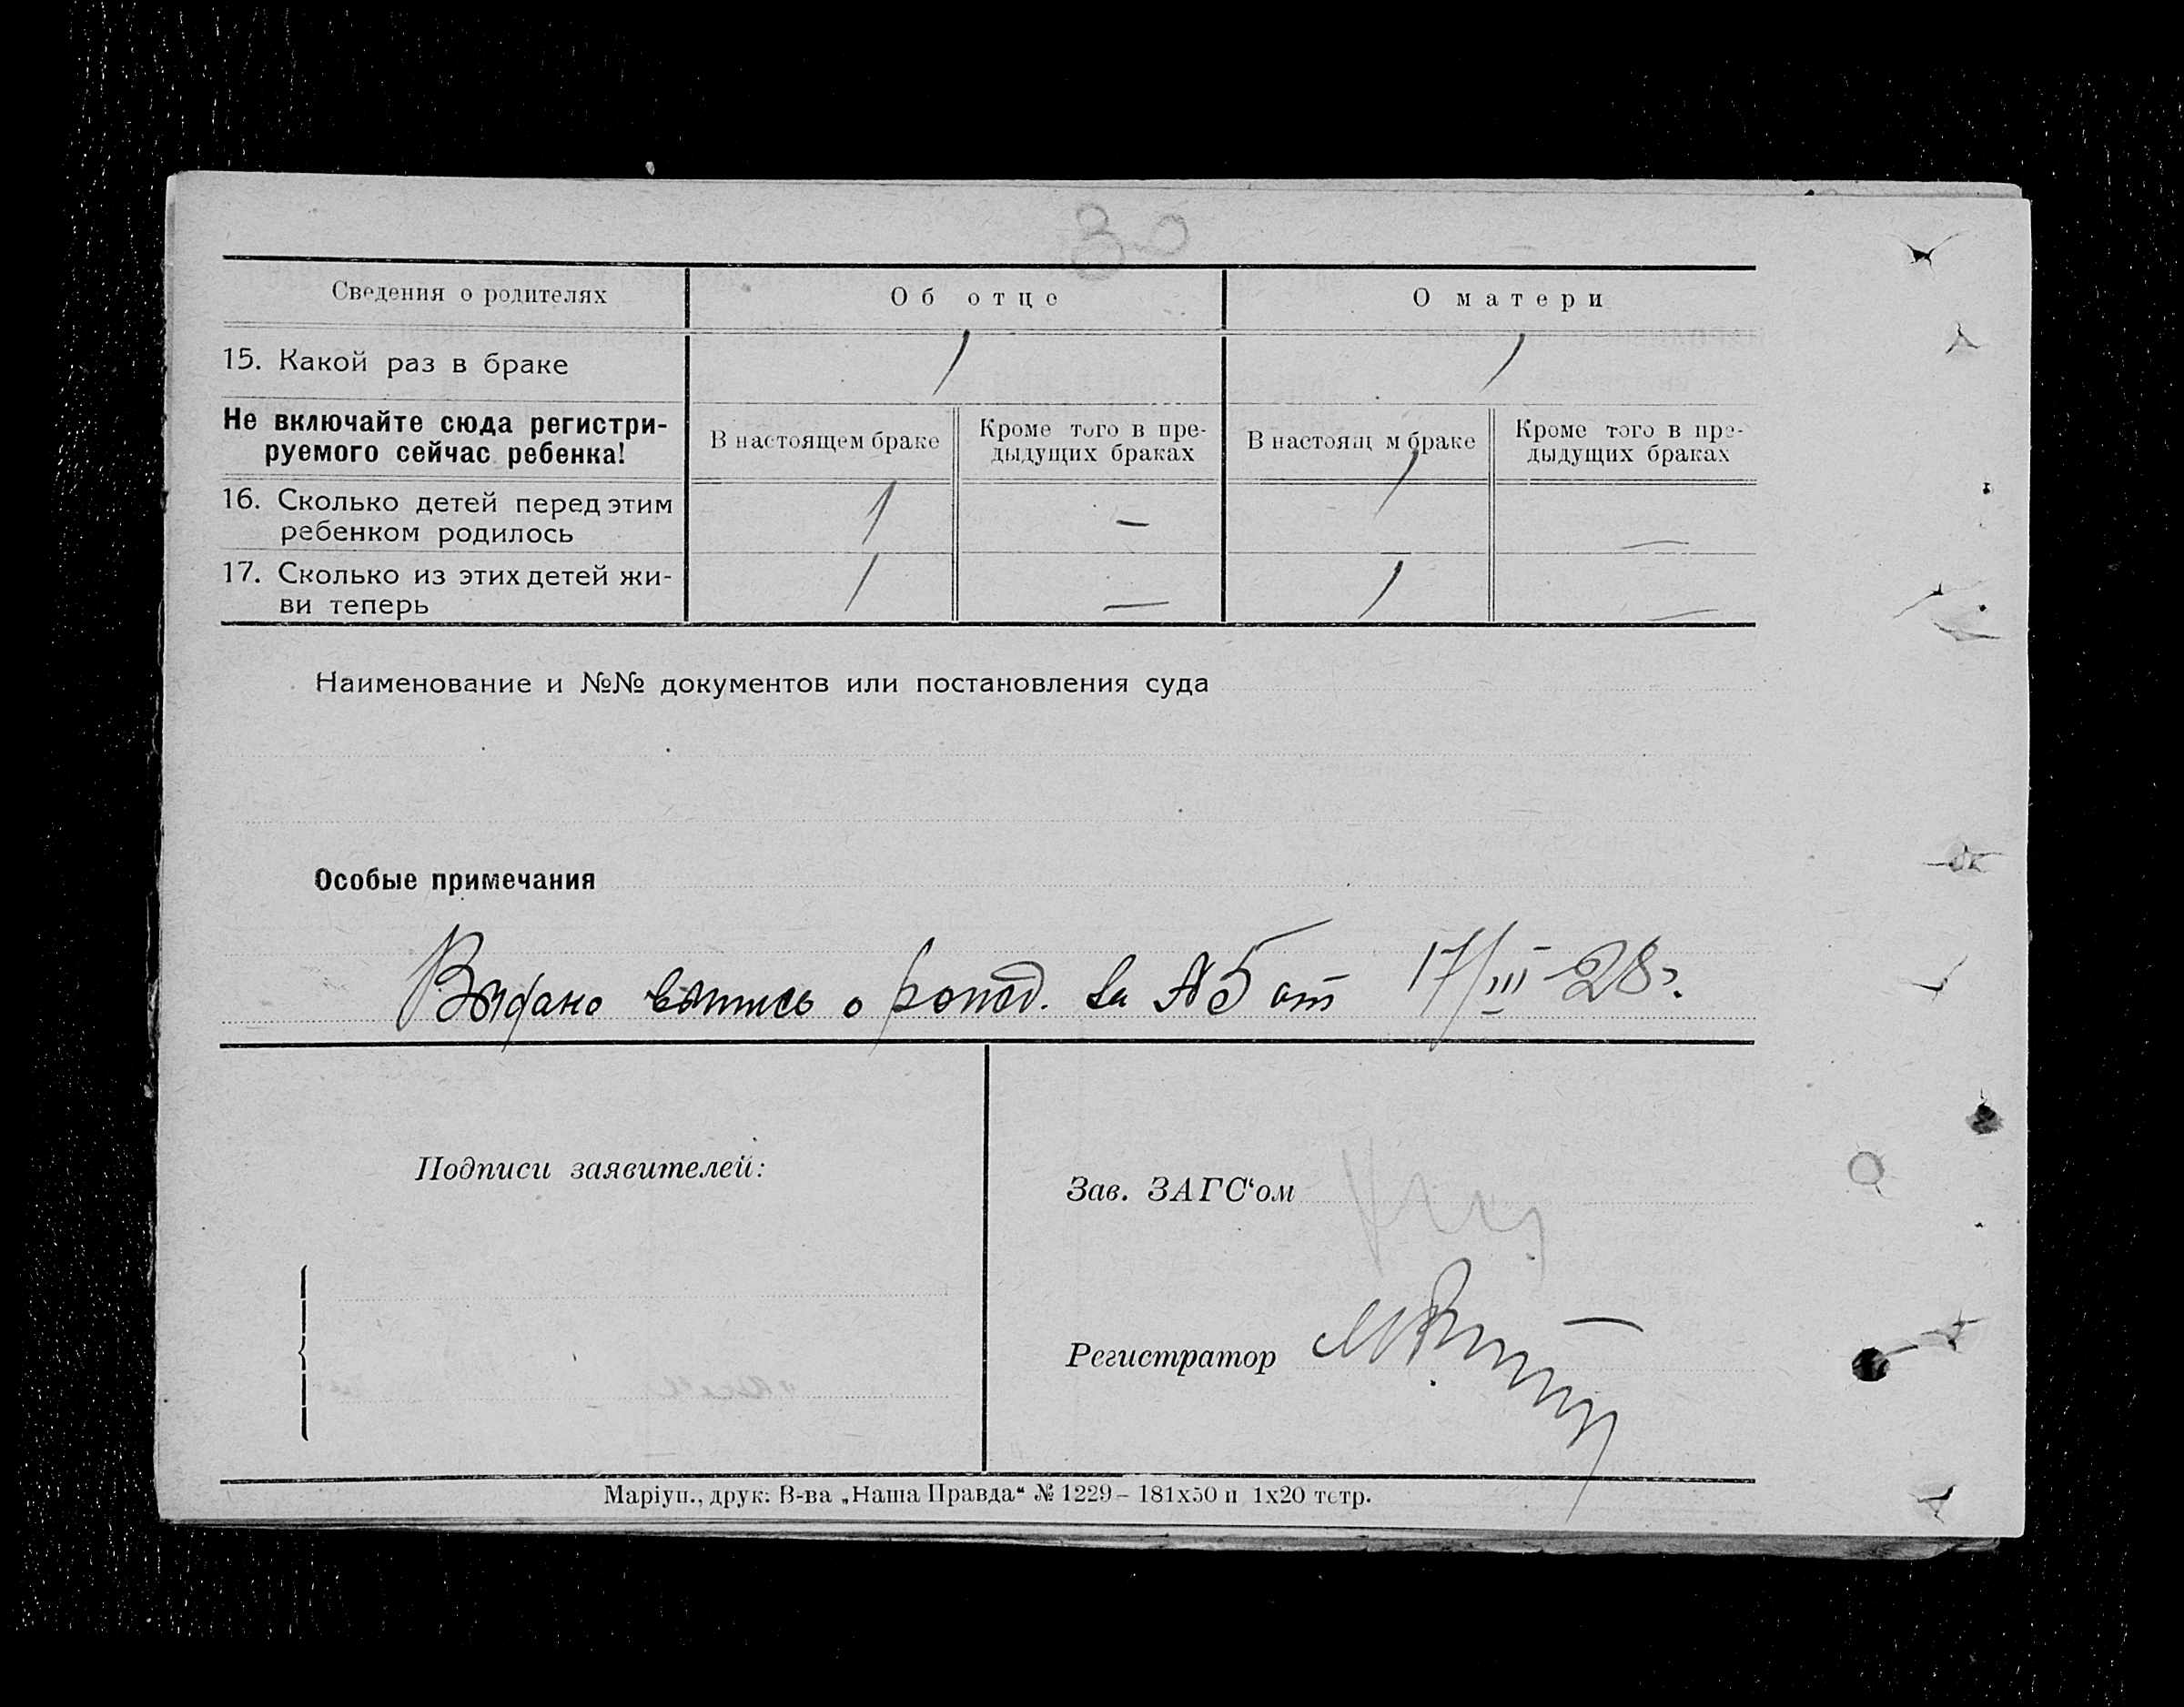 30
Сведения о родителях Об отце О матери
15. Какой раз в браке 1 1
Не включайте сюда регистри-
руемого сейчас ребенка!
В настоящем браке Кроме того в пре-
дыдущих браках
В настоящ м браке Кроме того в пре-
дыдущих браках
16. Сколько детей перед этим
ребенком родилось 1 — 1 —
17. Сколько из этих детей жи-
ви теперь 1 — 1 —
Наименование и №№ документов или постановления суда
Особые примечания
Выдано о рожд. за №5 от 17/III-28г.
Подписи заявителей:
Зав. ЗАГС‘ом
Регистратор
Маріуп., друк: В-ва „Наша Правда“ № 1229 – 181х50 п 1х20 тстр.